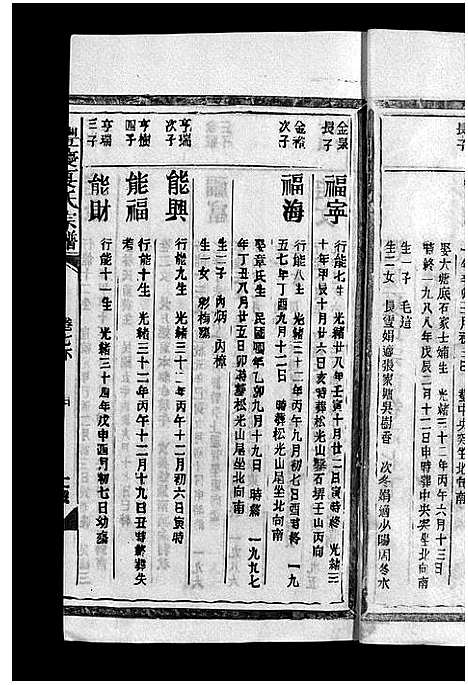 娶大塘底石家士婻生 光緒三十二年丙午六月十三日
時終一九八八年戊辰二月十一日申時葬中央坐北向南
生一子 毛道
生二女 長雪娟適張家 吳樹香 次冬娟適少陽周冬水
金
長子
福寧
行能七生 光緒廿八年壬寅十月廿二日寅時終 光緒三
十年甲辰十月廿六日亥時葬松光山 石塝壬山丙向
金裕
次子
福海
行能八生 光緒三十二年丙午九月初七日酉時終 一九
五七年丁酉九月十二日 時葬松光山尾坐北向南
娶章氏生 民國 年乙卯九月十九日 時終 一九九七
年丁丑八月廿五日卯時葬松光山尾坐北向南
生二子 內炳 內樟
生一女 彩梅
亨瑞
次子
能興
行能九生 光緒三十二年丙午十二月初六日寅時
亨樹
四子
能福
行能十生 光緒三十二年丙午十二月十九日丑時終葬失
考
亨瑞
三子
能財
行能十一生 光緒三十四年戊申酉月初七日幼殤
氏宗譜
卷七下